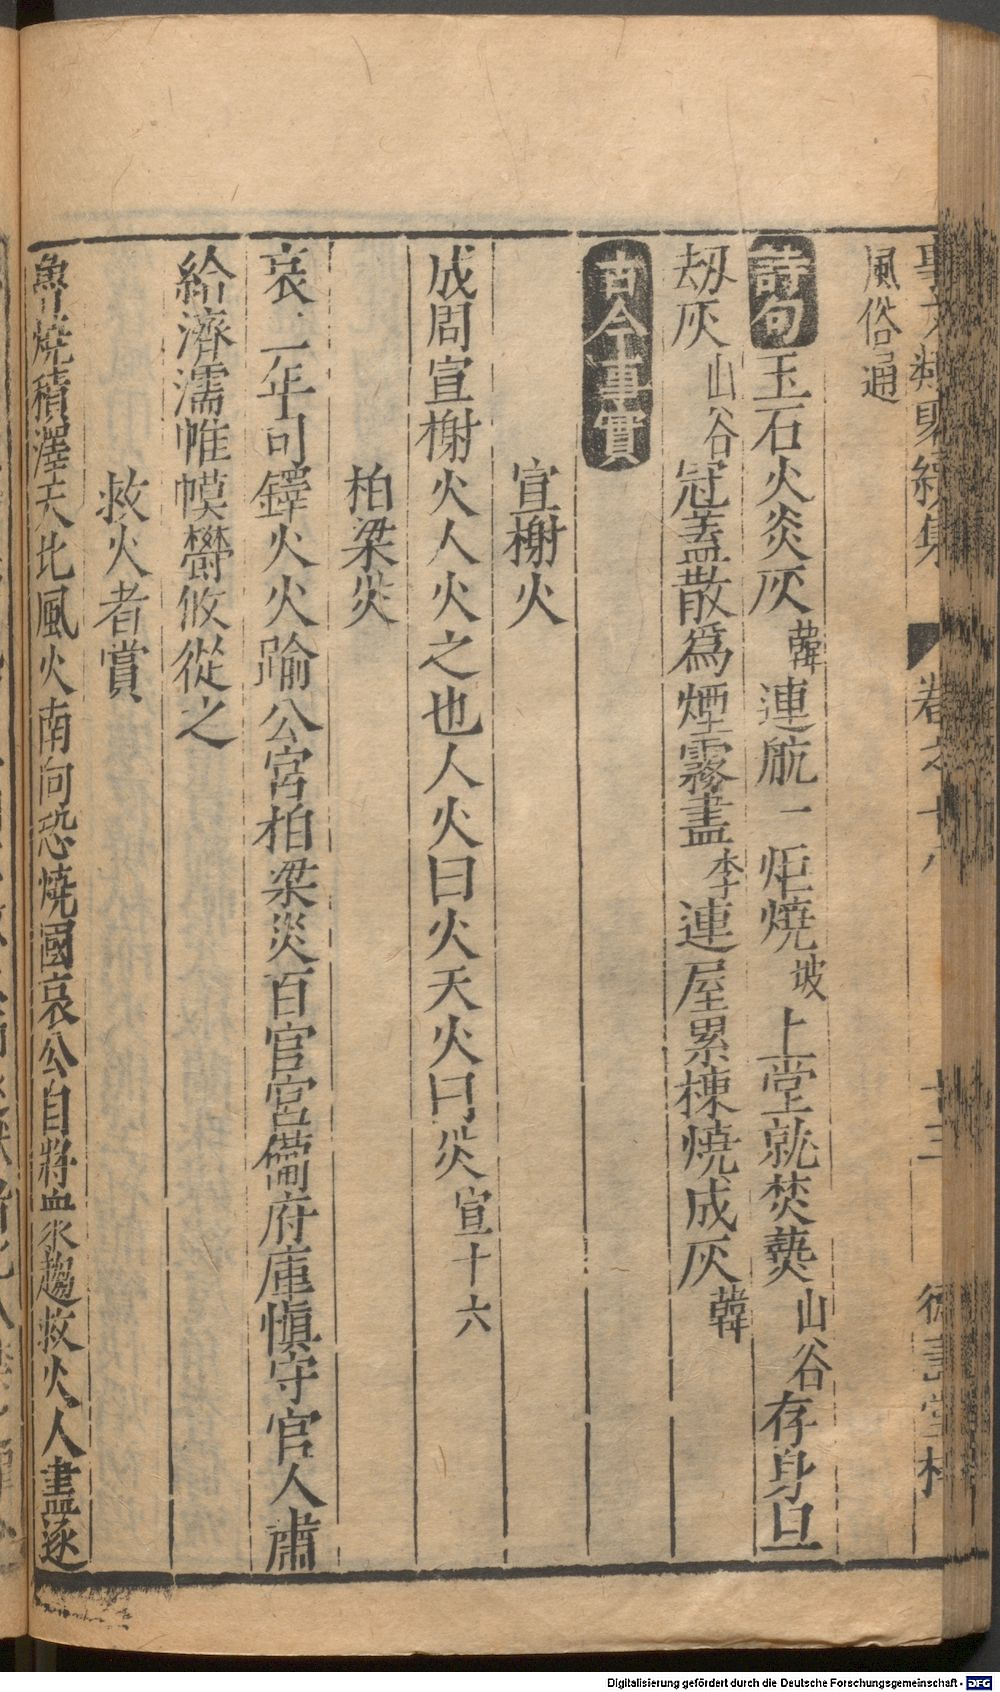 事文類聚續集 卷之十八 十三 德壽堂梓
風俗通
詩句 玉石火炎灰韓連航一炬燒坡上堂就焚爇山谷存身旦
刼灰山谷冠蓋散爲煙霧盡李連屋累棟燒成灰韓
古今事實
宣榭火
成周宣榭火人火之也人火曰火天火曰災宣十六
柏梁災
哀二年司鐸火火踰公宮柏梁災百官宮備府庫愼守官人肅
給濟濡帷幕鬱攸從之
救火者賞
魯燒積澤天比風火南向恐燒國哀公自將衆趨救火人盡逐
Digitalisierung gefördert durch die Deutsche Forschungsgemeinschaft - DFG